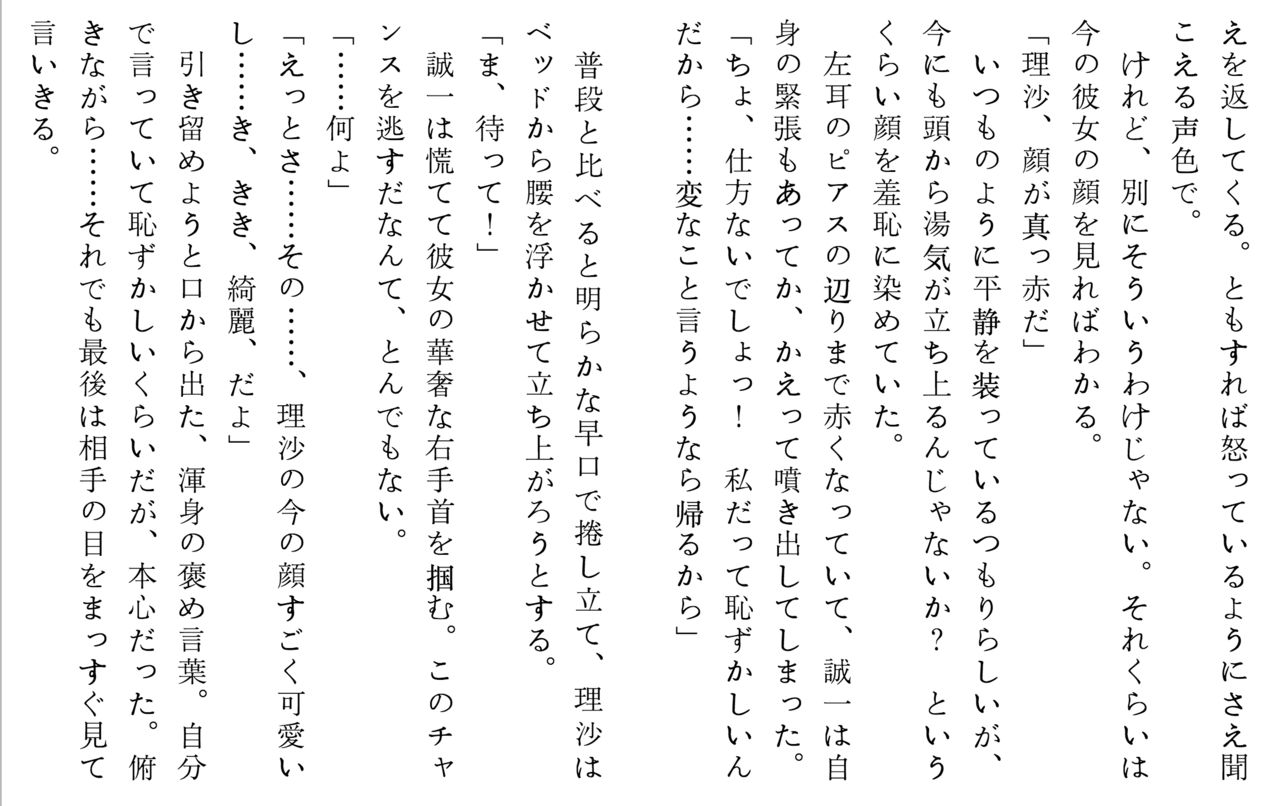 えを返してくる。ともすれば怒っているようにさえ聞
こえる声色で。
　けれど、別にそういうわけじゃない。それくらいは
今の彼女の顔を見ればわかる。
「理沙、顔が真っ赤だ」
　いつものように平静を装っているつもりらしいが、
今にも頭から湯気が立ち上るんじゃないか？　という
くらい顔を羞恥に染めていた。
　左耳のピアスの辺りまで赤くなっていて、誠一は自
身の緊張もあってか、かえって噴き出してしまった。
「ちょ、仕方ないでしょっ！　私だって恥ずかしいん
だから……変なこと言うようなら帰るから」
　普段と比べると明らかな早口で捲し立て、理沙は
ベッドから腰を浮かせて立ち上がろうとする。
「ま、待って！」
　誠一は慌てて彼女の華奢な右手首を掴む。このチャ
ンスを逃すだなんて、とんでもない。
「……何よ」
「えっとさ……その……、理沙の今の顔すごく可愛い
し……き、きき、綺麗、だよ」
　引き留めようと口から出た、渾身の褒め言葉。自分
で言っていて恥ずかしいくらいだが、本心だった。俯
きながら……それでも最後は相手の目をまっすぐ見て
言いきる。